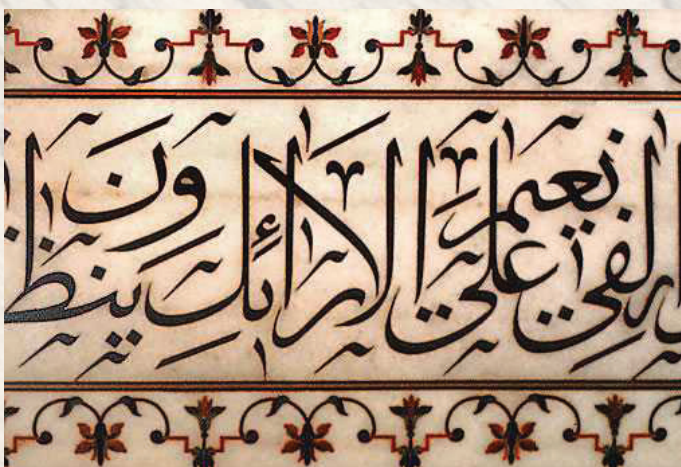 لفي نعيم علي الارائك ينظرون